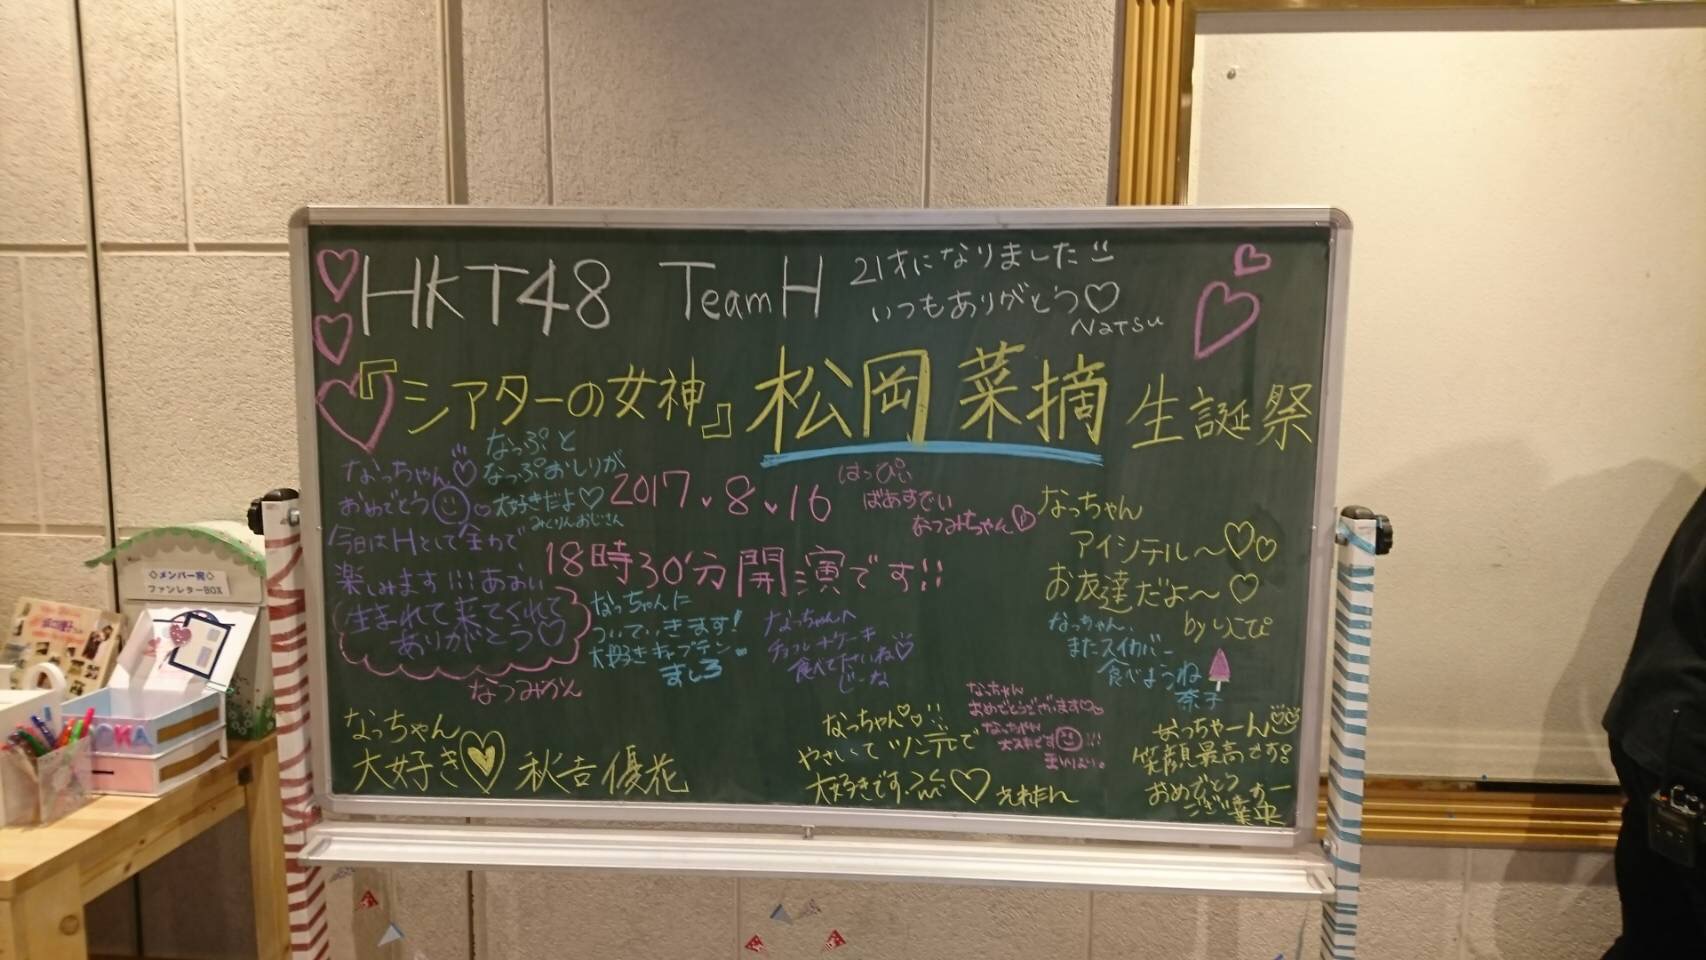 HKT48 TeamH
21才になりました
いつもありがとう♡
NaTSU
『シアターの女神』松岡菜摘 生誕祭
なっちゃん♡
おめでとう
今日はHとして全力で
楽しみます!!! あおい
なっぷと
なっぷおしりが
大好きだよ♡
みくりんおじさん
2017.8.16
18時30分開演です!!
はっぴぃ
ばあすでい
なつみちゃん♡
なっちゃん
アイシテル〜♡♡
お友達だよ〜♡
by りこぴ
生まれて来てくれて
ありがとう♡
なつみかん
なっちゃんに
ついていきます!
大好きキャプテン
ましろ
なっちゃんへ
食べてださいね♡
じーな
なっちゃん、
またスイカバー
食べようね
奈子
なっちゃん
大好き♡ 秋吉優花
なっちゃん♡♡!!
やさしくて
大好きです
なっちゃん
おめでとうございます♡♡
なっちゃん
大スキです!!!
なっちゃーん
笑顔最高です!
おめでとう
◇メンバー宛◇
ファンレターBOX